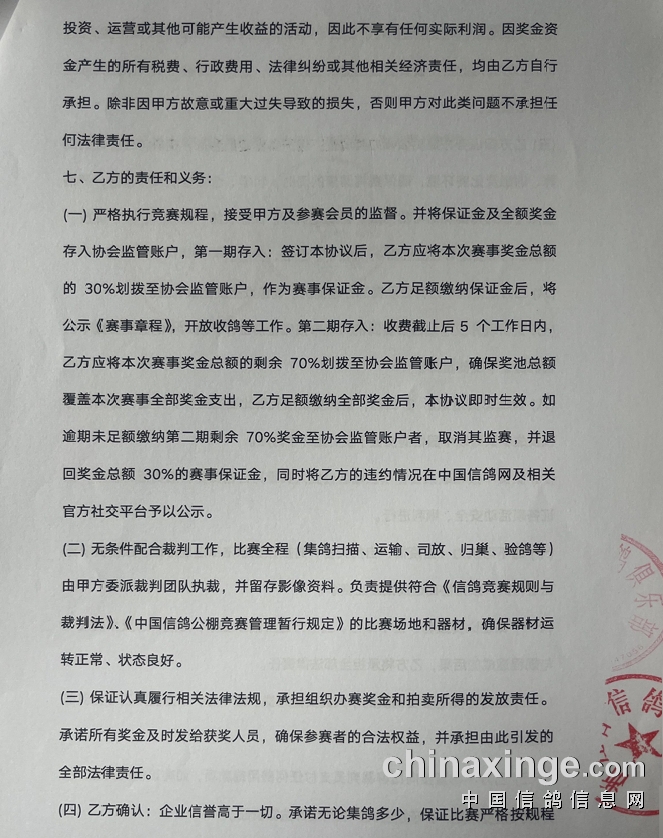 投资、运营或其他可能产生收益的活动，因此不享有任何实际利润。因奖金资
金产生的所有税费、行政费用、法律纠纷或其他相关经济责任，均由乙方自行
承担。除非因甲方故意或重大过失导致的损失，否则甲方对此类问题不承担任
何法律责任。
七、乙方的责任和义务：
(一) 严格执行竞赛规程，接受甲方及参赛会员的监督。并将保证金及全额奖金
存入协会监管账户，第一期存入：签订本协议后，乙方应将本次赛事奖金总额
的 30%划拨至协会监管账户，作为赛事保证金。乙方足额缴纳保证金后，将
公示《赛事章程》，开放收鸽等工作。第二期存入：收费截止后 5 个工作日内，
乙方应将本次赛事奖金总额的剩余 70%划拨至协会监管账户，确保奖池总额
覆盖本次赛事全部奖金支出，乙方足额缴纳全部奖金后，本协议即时生效。如
逾期未足额缴纳第二期剩余 70%奖金至协会监管账户者，取消其监赛，并退
回奖金总额 30%的赛事保证金，同时将乙方的违约情况在中国信鸽网及相关
官方社交平台予以公示。
(二) 无条件配合裁判工作，比赛全程（集鸽扫描、运输、司放、归巢、验鸽等）
由甲方委派裁判团队执裁，并留存影像资料。负责提供符合《信鸽竞赛规则与
裁判法》、《中国信鸽公棚竞赛管理暂行规定》的比赛场地和器材，确保器材运
转正常、状态良好。
(三) 保证认真履行相关法律法规，承担组织办赛奖金和拍卖所得的发放责任。
承诺所有奖金及时发给获奖人员，确保参赛者的合法权益，并承担由此引发的
全部法律责任。
(四) 乙方确认：企业信誉高于一切。承诺无论集鸽多少，保证比赛严格按规程
俱乐部
信鸽
chinaxinge.com
中国信鸽信息网